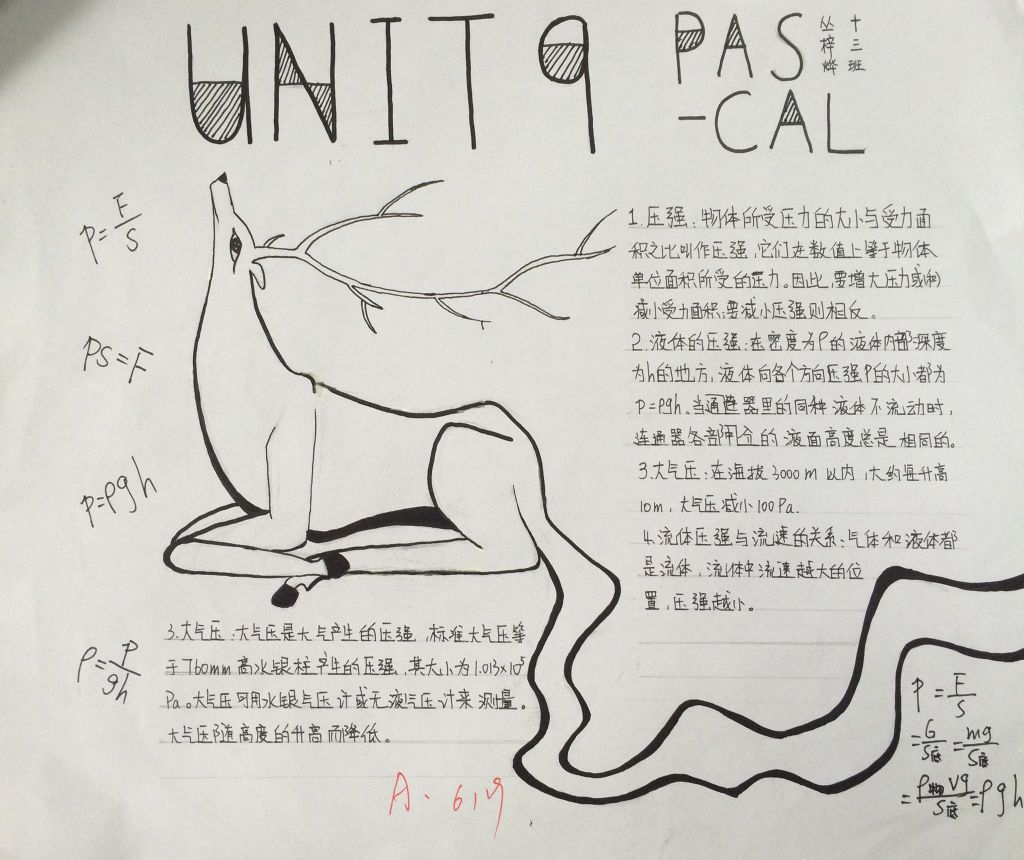 UNIT 9
PAS
-CAL
十三班
丛梓烨
p=F/S
PS=F
p=ρgh
ρ=P/gh
1.压强:物体所受压力的大小与受力面
积之比叫作压强,它们在数值上等于物体
单位面积所受的压力。因此,要增大压力或(和)
减小受力面积;要减小压强则相反。
2.液体的压强:在密度为ρ的液体内部深度
为h的地方,液体向各个方向压强P的大小都为
P=ρgh.当连通器里的同种液体不流动时,
连通器各部分的液面高度总是相同的。
3.大气压:在海拔3000m以内,大约每升高
10m,大气压减小100Pa.
4.流体压强与流速的关系:气体和液体都
是流体,流体中流速越大的位
置,压强越小。
3.大气压:大气压是大气产生的压强,标准大气压等
于760mm高水银柱产生的压强,其大小为1.013×10⁵
Pa。大气压可用水银气压计或无液气压计来测量。
大气压随高度的升高而降低。
P=F/S
=G/S底=mg/S底
=ρ物Vg/S底=ρgh
A. 6.19